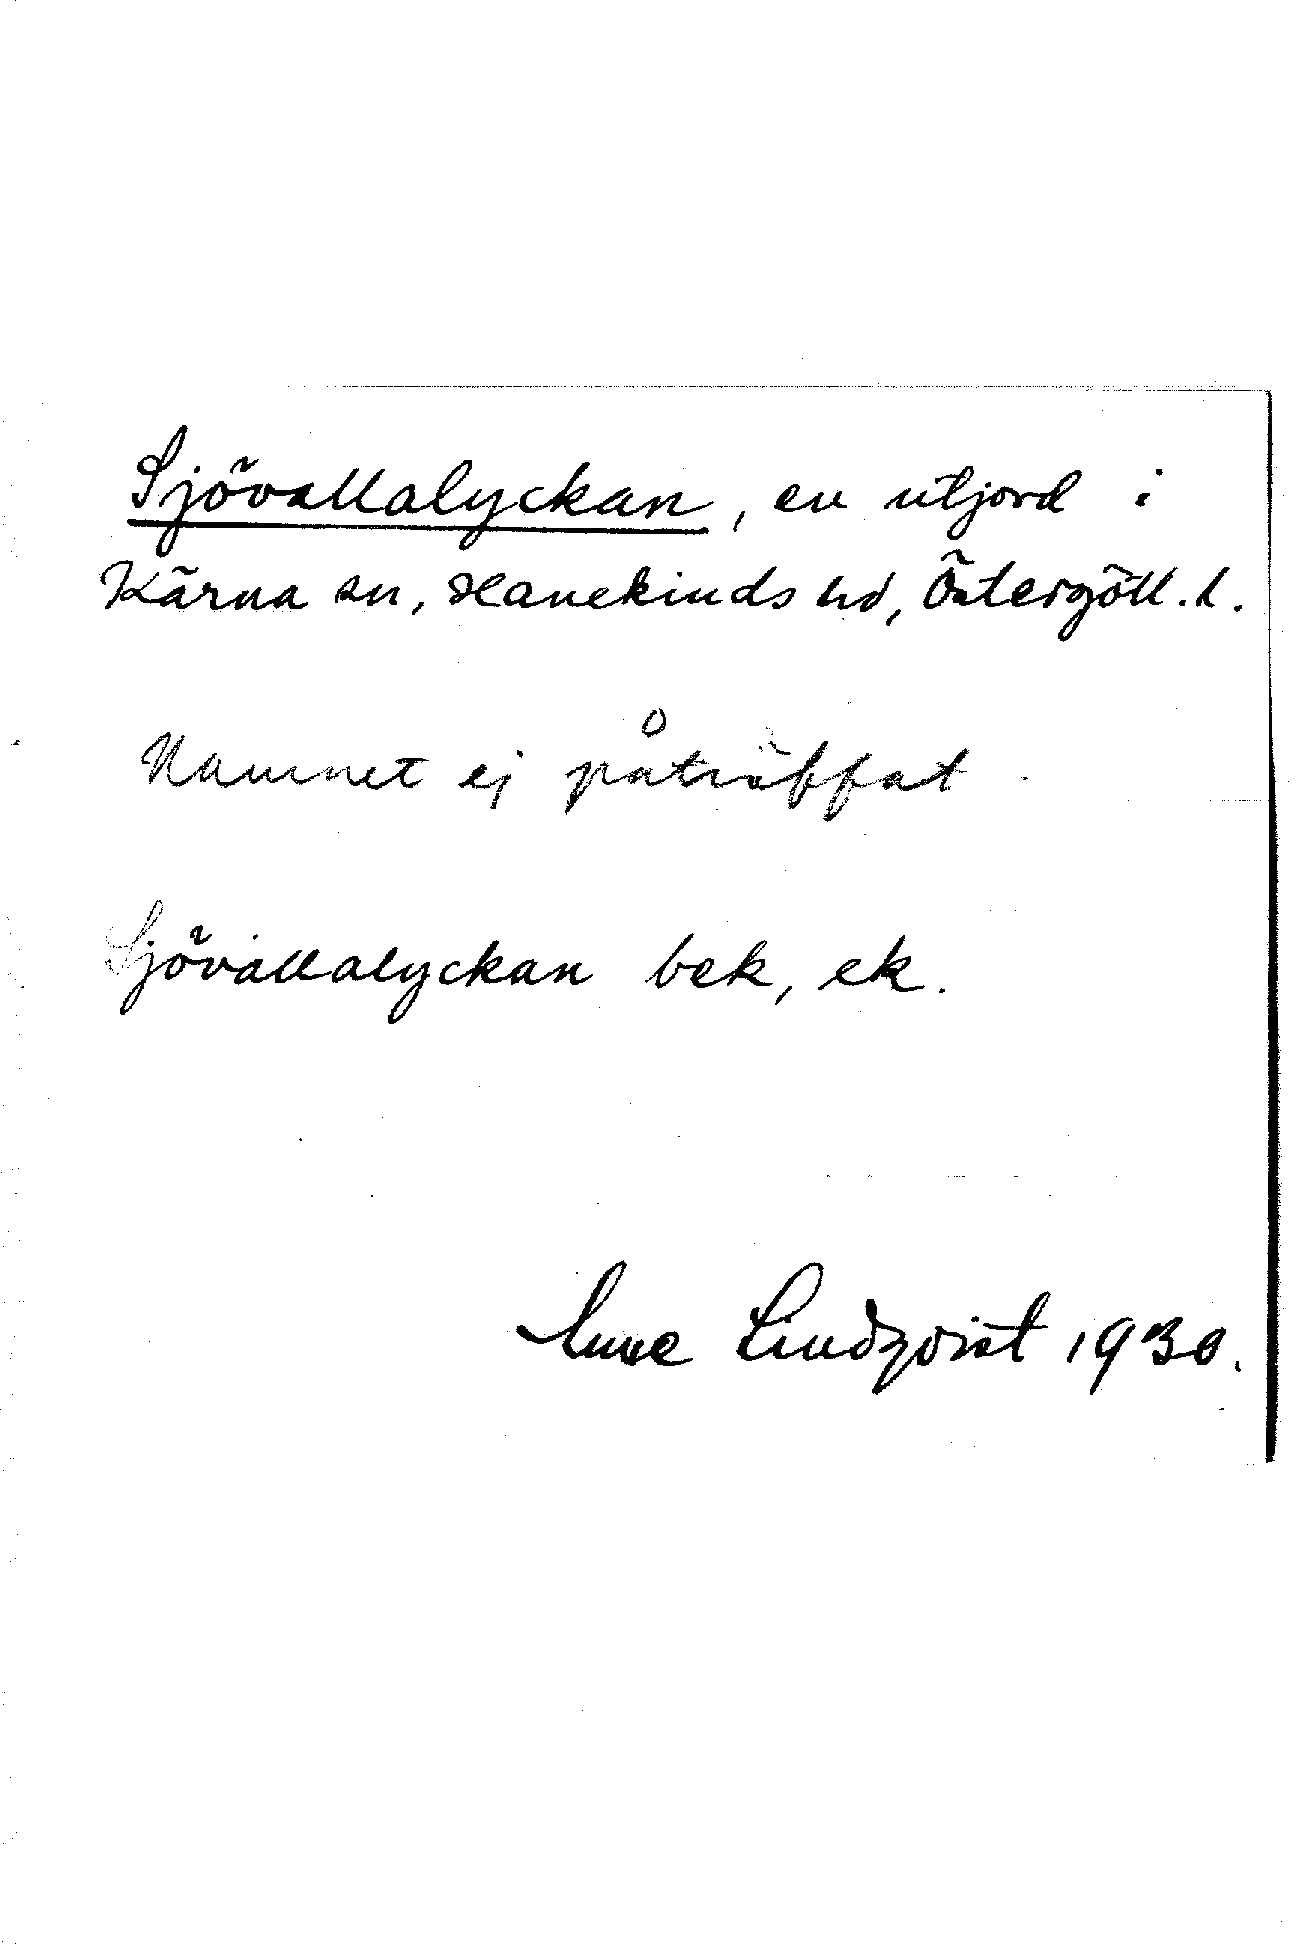 Sjövallalyckan, en utjord i
Kärna sn, Hanekinds hd, Östergötl. l.
Namnet ej påträffat
Sjövallalyckan bek, ek.
Sune Lindqvist 1930.